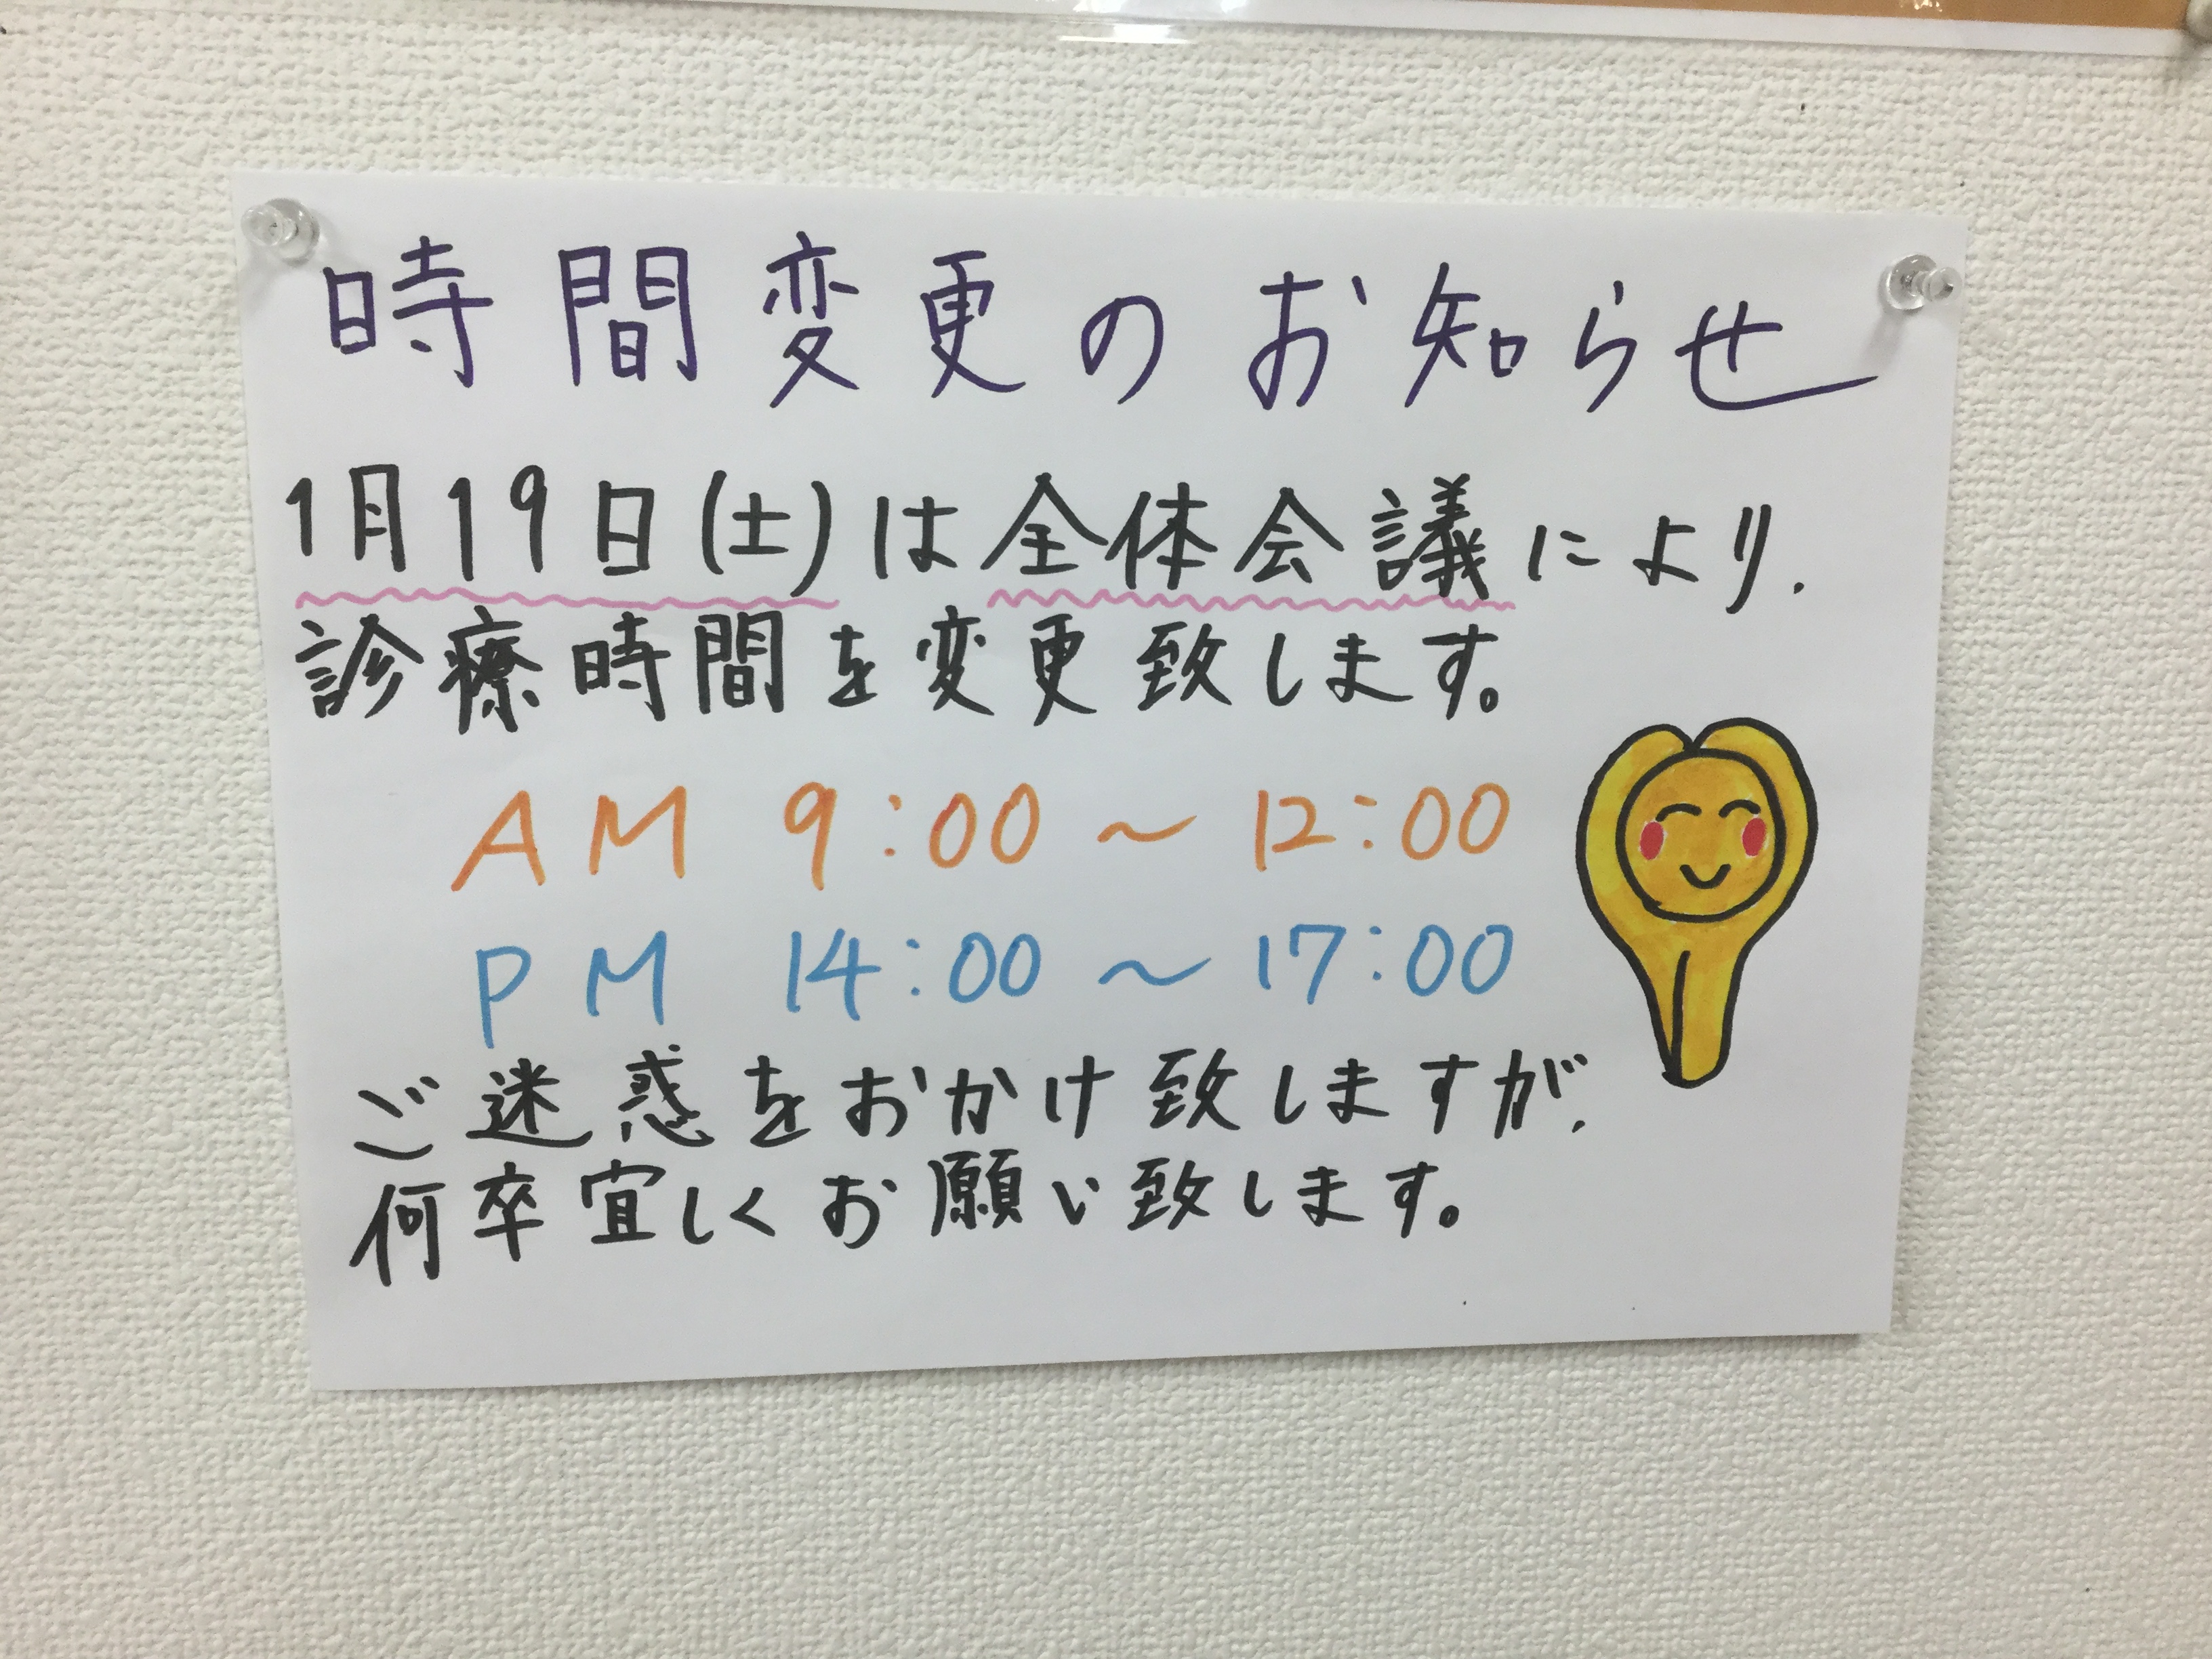 時間変更のお知らせ
1月19日(土)は全体会議により、
診療時間を変更致します。
AM 9:00～12:00
PM 14:00～17:00
ご迷惑をおかけ致しますが、
何卒宜しくお願い致します。